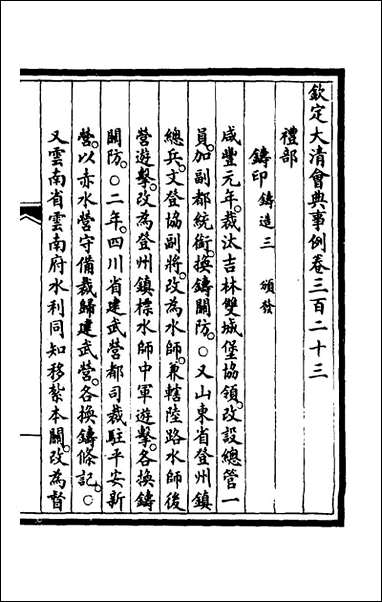 欽定大清會典事例卷三百二十三
禮部
鑄印 鑄造三 頒發
咸豐元年裁汰吉林雙城堡協領改設總管一
員加副都統銜換鑄關防○又山東省登州鎮
總兵文登協副將改為水師兼轄陸路水師後
營遊擊改為登州鎮標水師中軍遊擊各換鑄
關防○二年四川省建武營都司裁駐平安新
營以赤水營守備裁歸建武營各換鑄條記○
又雲南省雲南府水利同知移紮本關改為督